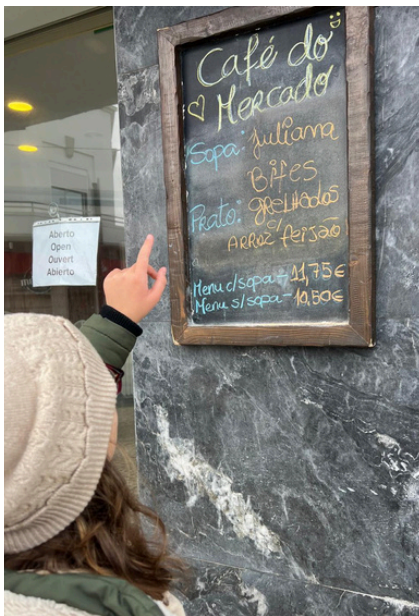 Café do
Mercado
Sopa: Juliana
Bifes
Prato: GRELHADOS
c/
ARROZ feijão
Menu c/sopa - 11,75€
Menu s/sopa - 10,50€
Aberto
Open
Ouvert
Abierto